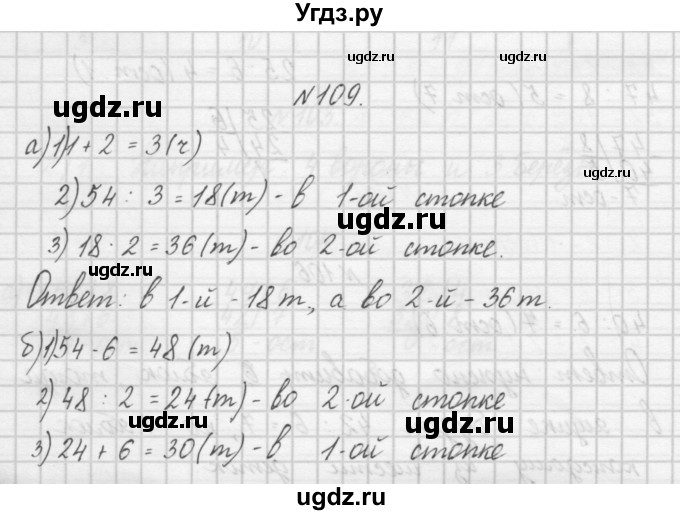 Угдз.ру
ugdz.ru
ugdz.ru
N109.
ugdz.ru
ugdz.ru
а)1)1 + 2 = 3(ч)
ugdz.ru
2)54 : 3 = 18(т) - в 1-ой стопке
ugdz.ru
3) 18 · 2 = 36(т) - во 2-ой стопке.
ugdz.ru
Ответ: в 1-й - 18 т, а во 2-й - 36 т.
б)1)54 - 6 = 48 (т)
ugdz.ru
2) 48 : 2 = 24(т) - во 2-ой стопке
ugdz.ru
ugdz.ru
3) 24 + 6 = 30(т) - в 1-ой стопке
ugdz.ru